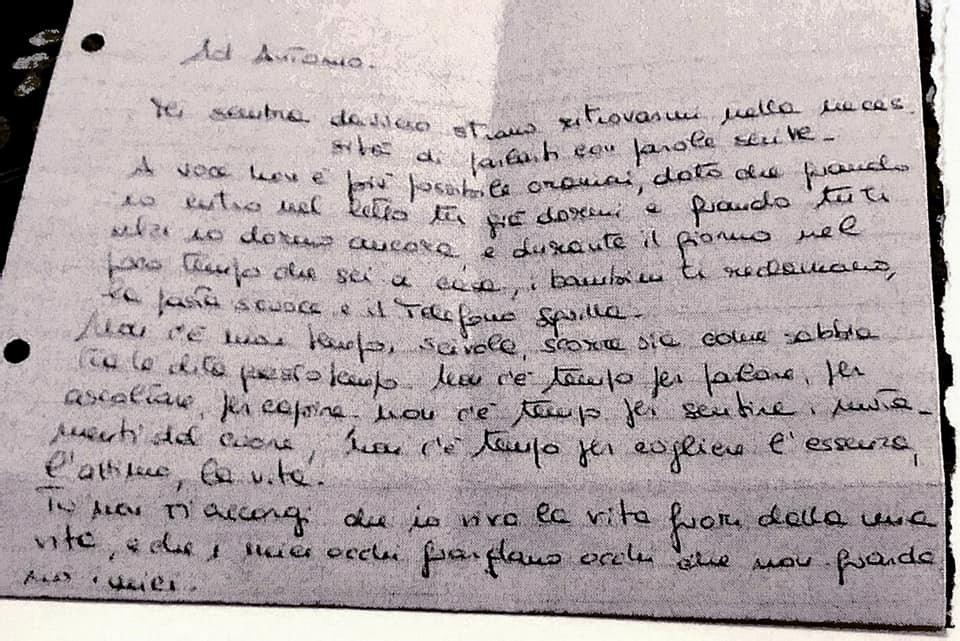 Ad Antonio.
Mi sembra davvero strano ritrovarmi nella neces
sità di parlarti con parole scritte.
A voce non è più possibile oramai, dato che quando
io entro nel letto tu già dormi e quando tu ti
alzi io dormo ancora, e durante il giorno nel
poco tempo che sei a casa, i bambini ti reclamano,
la pasta scuoce e il telefono squilla.
Non c'è mai tempo, scivola, scorre via come sabbia
tra le dita questo tempo. Non c'è tempo per parlare, per
ascoltare, per capire. Non c'è tempo per sentire i muta-
menti del cuore, non c'è tempo per cogliere l'essenza,
l'attimo, la vita.
Tu non ti accorgi che io vivo la vita fuori dalla mia
vita, e che i miei occhi guardano occhi che non guarda
no i miei.